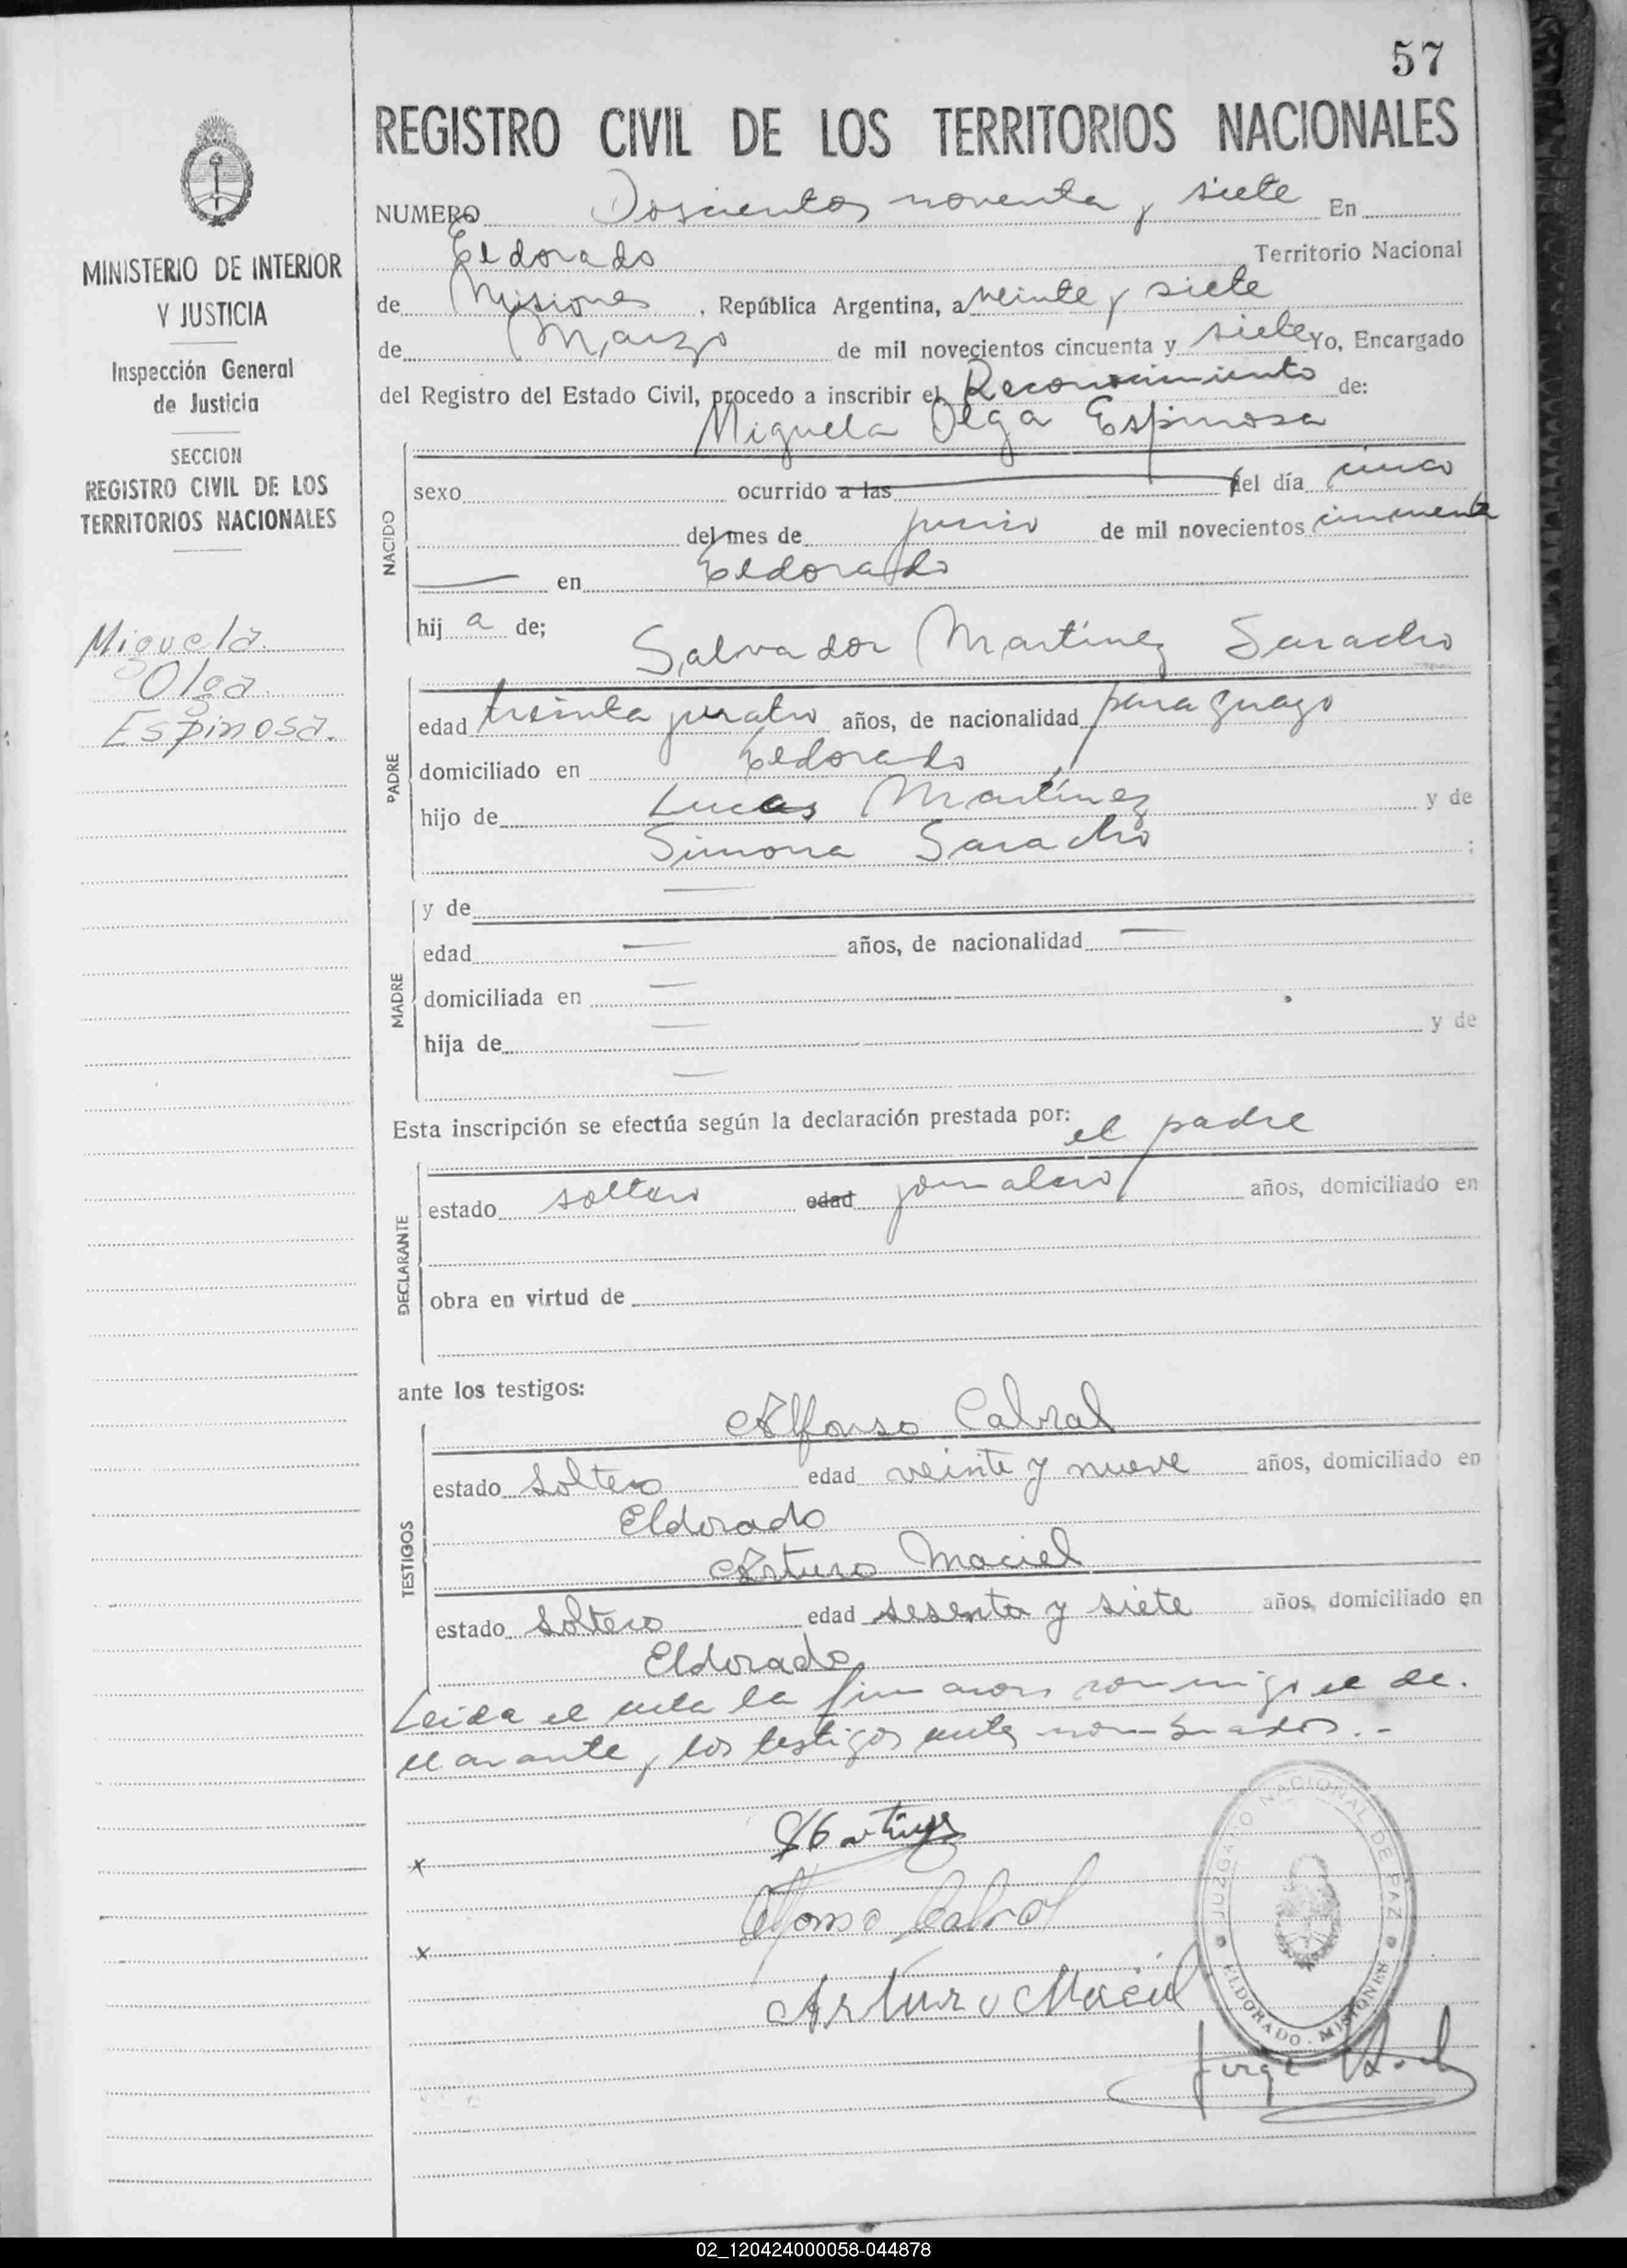 57
REGISTRO CIVIL DE LOS TERRITORIOS NACIONALES
NUMERO Doscientos noventa y siete En
Eldorado Territorio Nacional
de Misiones, República Argentina, a veinte y siete
de Marzo de mil novecientos cincuenta y siete Yo, Encargado
del Registro del Estado Civil, procedo a inscribir el Reconocimiento de:
Miguela Olga Espinosa
NACIDO
sexo ocurrido a las del día cinco
del mes de junio de mil novecientos cincuenta
en Eldorado
hija de;
Salvador Martínez Saracho
PADRE
edad treinta y cuatro años, de nacionalidad paraguayo
domiciliado en Eldorado
hijo de Lucas Martínez y de
Simona Saracho ;
MADRE
y de
edad años, de nacionalidad
domiciliada en
hija de y de
Esta inscripción se efectúa según la declaración prestada por: el padre
DECLARANTE
estado soltero edad jornalero años, domiciliado en
obra en virtud de
ante los testigos:
TESTIGOS
Alfonso Cabral
estado Soltero edad veinte y nueve años, domiciliado en
Eldorado
Arturo Maciel
estado Soltero edad sesenta y siete años, domiciliado en
Eldorado
Leida el acta la firmaron conmigo el de.
clarante y los testigos antes nombrados.-
x
Alfonso Cabral
x
Arturo Maciel
Jorge
JUZGADO NACIONAL DE PAZ
ELDORADO - MISIONES
MINISTERIO DE INTERIOR
Y JUSTICIA
Inspección General
de Justicia
SECCION
REGISTRO CIVIL DE LOS
TERRITORIOS NACIONALES
Miguela
Olga
Espinosa.
02_120424000058-044878